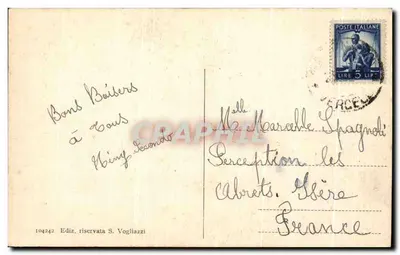 POSTE ITALIANE
LIRE 5 LIRE
Bons Baisers
à Tous
Mlle Marcelle Spagnoli
Perception les
Abrets. Isère
France
104242 Ediz. riservata S. Vogliazzi
CRAPHIL